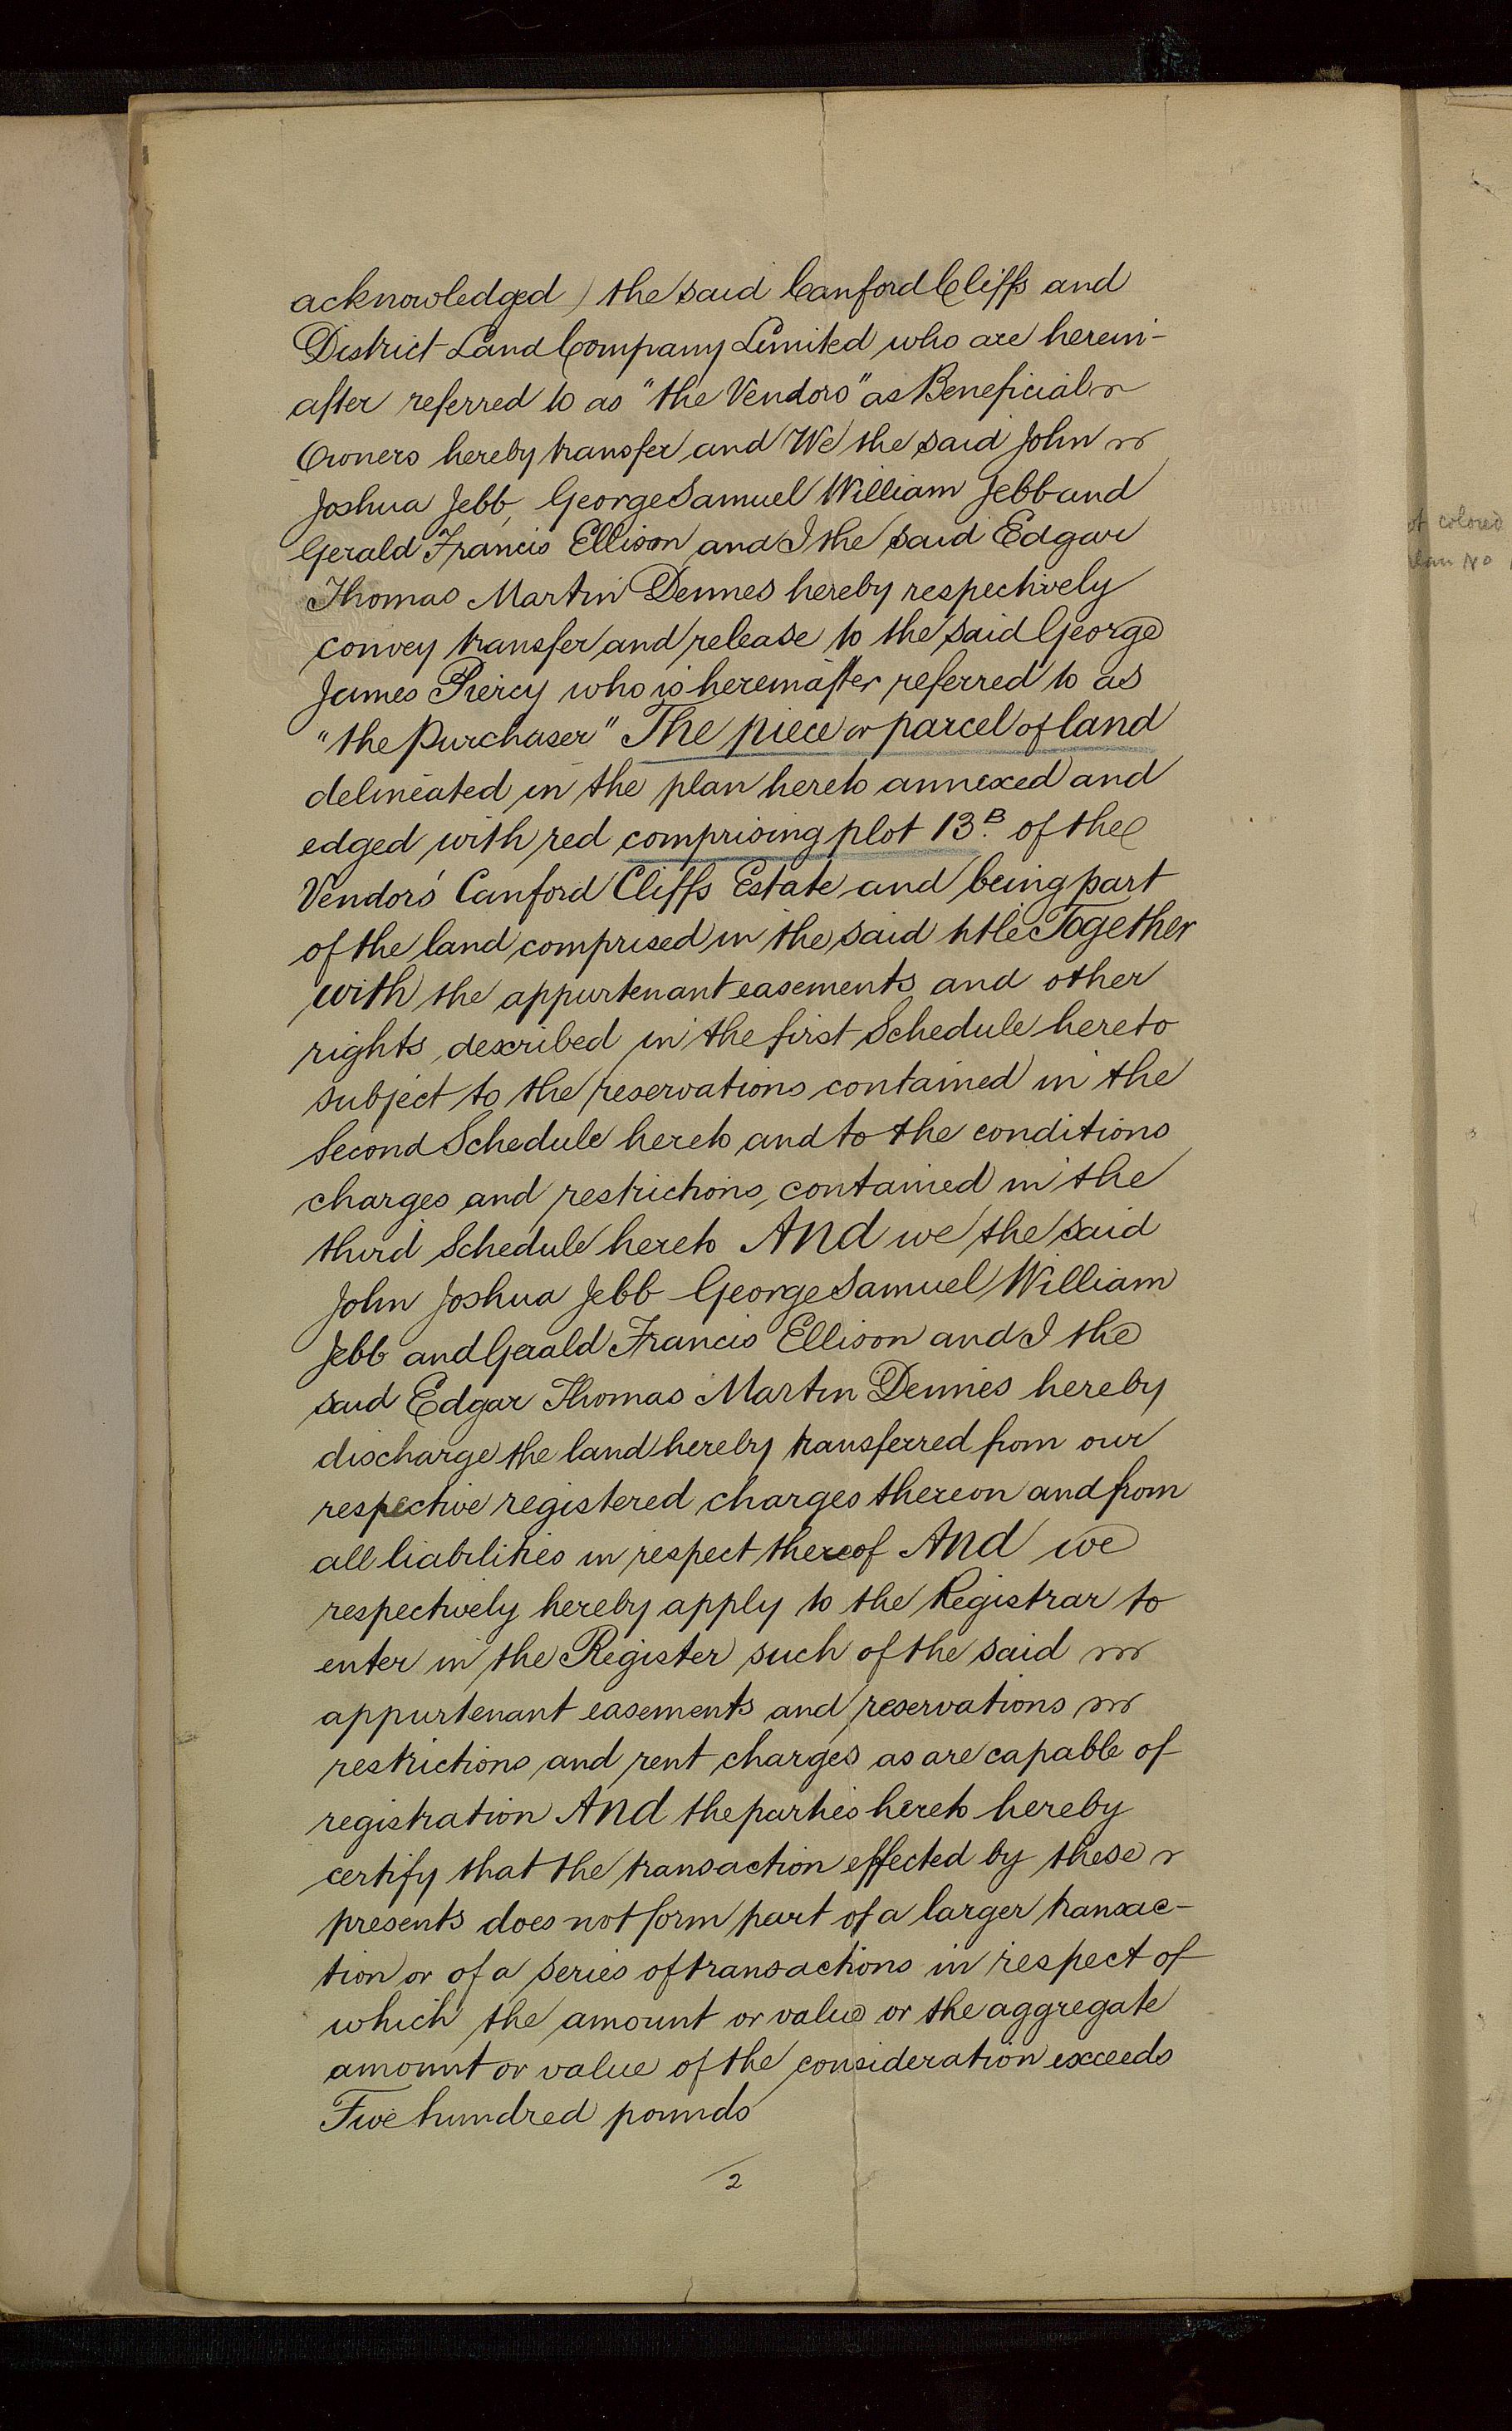 acknowledged) the said Canford Cliffs and
District Land Company Limited who are herein-
after referred to as "the Vendors" as Beneficial
Owners hereby transfer and We the said John
Joshua Jebb, George Samuel William Jebb and
Gerald Francis Ellison and I the said Edgar
Thomas Martin Dennes hereby respectively
convey transfer and release to the said George
James Piercy who is hereinafter referred to as
"the Purchaser" The piece or parcel of land
delineated in the plan hereto annexed and
edged with red comprising plot 13.B of the
Vendors' Canford Cliffs Estate and being part
of the land comprised in the said title Together
with the appurtenant easements and other
rights described in the first Schedule hereto
subject to the reservations contained in the
Second Schedule hereto and to the conditions
charges and restrictions, contained in the
third Schedule hereto And we the said
John Joshua Jebb George Samuel William
Jebb and Gerald Francis Ellison and I the
said Edgar Thomas Martin Dennes hereby
discharge the land hereby transferred from our
respective registered charges thereon and from
all liabilities in respect thereof And we
respectively hereby apply to the Registrar to
enter in the Register such of the said
appurtenant easements and reservations
restrictions and rent charges as are capable of
registration And the parties hereto hereby
certify that the transaction effected by these
presents does not form part of a larger transac-
tion or of a series of transactions in respect of
which the amount or value or the aggregate
amount or value of the consideration exceeds
Five hundred pounds
2
colored
No